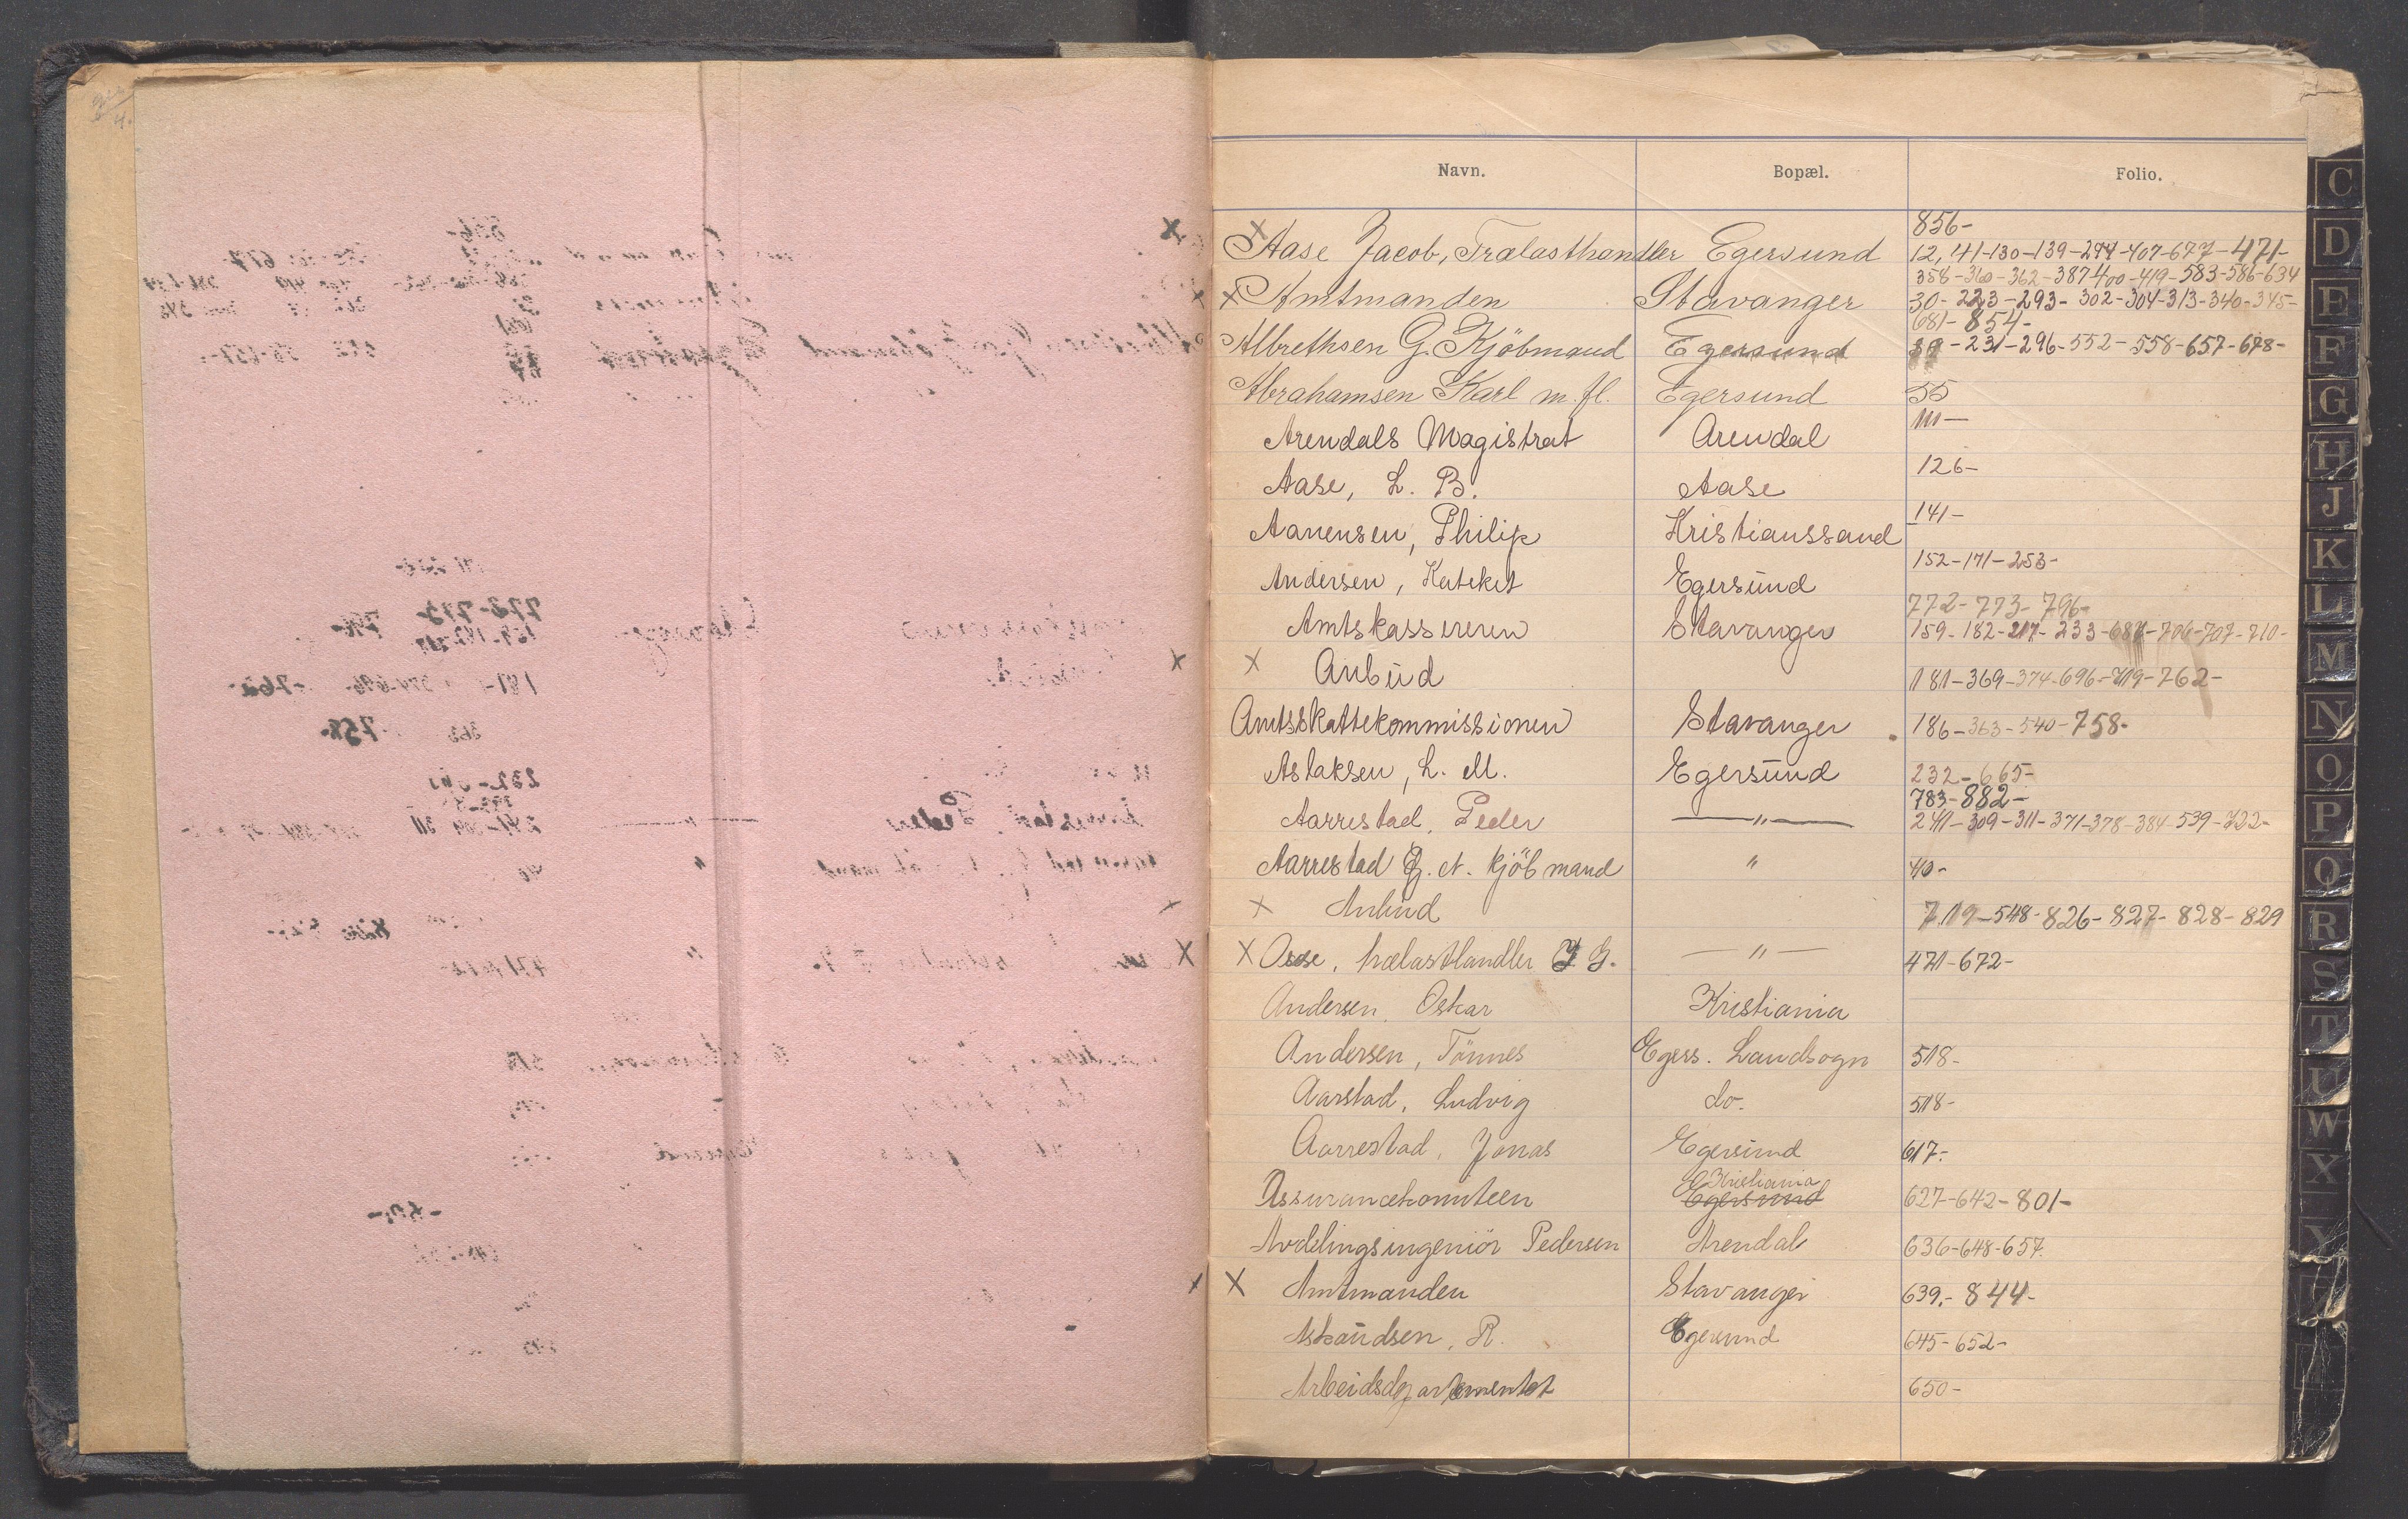 Navn. Bopæl. Folio.
856-
X Aase Jacob, Trælasthandler Egersund 12, 141-130-139-244-407-677-471-
358-360-362-387-400-419-583-586-634
X Amtmanden Stavanger 30-223-293-302-304-313-340-345-
681-854-
Albrethsen G. Kjöbmand Egersund 231-296-552-558-657-678-
Abrahamsen Karl m. fl. Egersund 55
Arendals Magistrat Arendal 111-
Aase, L. B. Aase 126-
Aanensen, Philip Kristianssand 141-
Andersen, Kateket Egersund 152-171-253-
772-773-796-
Amtskassereren Stavanger 159-182-217-233-687-706-707-710-
X Anbud 181-369-374-696-719-762-
Amtsskattekommissionen Stavanger 186-363-540-758-
Aslaksen, L. M. Egersund 232-665-
783-882-
Aarrestad, Peder —"— 241-309-311-371-378-384-539-722-
Aarrestad G. A. kjöbmand " 40-
X Anbud 7.119-548-826-827-828-829
X Aase, trælasthandler J. G. —"— 471-672-
Andersen, Oskar Kristiania
Andersen, Tönnes Egers. Landsogn 518-
Aarstad, Ludvig do. 518-
Aarrestad, Jonas Egersund 617-
Kristiania
Assurancekomiteen Egersund 627-642-801-
Avdelingsingeniör Pedersen Arendal 636-648-657.
X Amtmanden Stavanger 639.-844-
Askaudsen, R. Egersund 645-652-
Arbeidsdepartementet 650-
C
D
E
F
G
H
J
K
L
M
N
O
P
Q
R
S
T
U
W
X
Y